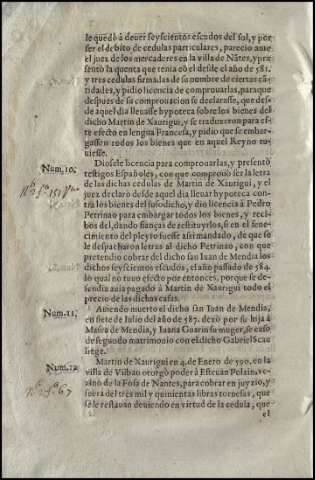 le quedò à deuer seyscientos escudos del sol, y por
ser el debito de cedulas particulares, parecio ante
el juez de los mercaderes en la villa de Nãtes, y pre
sentò la quenta que tenia cõ el desde el año de 581.
y tres cedulas firmadas de su nombre de ciertas cã
tidades, y pidio licencia de comprouarlas, para que
despues de su comprouacion se declarasse, que des-
de aquel dia lleuasse hypoteca sobre los bienes del
dicho Martin de Xaurigui, y se traduxeron para es-
te efecto en lengua Francesa, y pidio que se embar-
gassen todos los bienes que en aquel Reyno tu-
uiesse.
Num.10. Diosele licencia para comprouarlas, y presentò
testigos Españoles, con que comprouò ser la letra
de las dichas cedulas de Martin de Xaurigui, y el
juez declarò desde aquel dia lleuar hypoteca con-
tra los bienes del susodicho, y dio licencia à Pedro
Perrinao para embargar todos los bienes, y reci-
bos del, dando fianças de restituyrlos, si en el fene-
cimiento del pleyto fuesse assi mandado, de que se
le despacharon letras al dicho Petrinao, con que
pretendio cobrar del dicho san Iuan de Mendia los
dichos seyscientos escudos, el año passado de 584.
lo qual no tuuo efecto por entonces, porque se de-
sendia auia pagado à Martin de Xaurigui todo el
precio de las dichas casas.
Num.11. Auiendo muerto el dicho san Iuan de Mendia,
en siete de Iulio del año de 587. dexò por su hija à
Masra de Mendia, y Iuana Guarin su muger, se casò
de segundo matrimonio con el dicho Gabriel Scau
setege.
Num.12 Martin de Xaurigui en 4. de Enero de 590. en la
villa de Vilbao otorgò poder à Esteuan Polain, ve-
zino de la Fosa de Nantes, para cobrar en juyzio, y
fuera del tres mil y quinientas libras tornesas, que
se le restauan deuiendo en virtud de la cedula, que
el